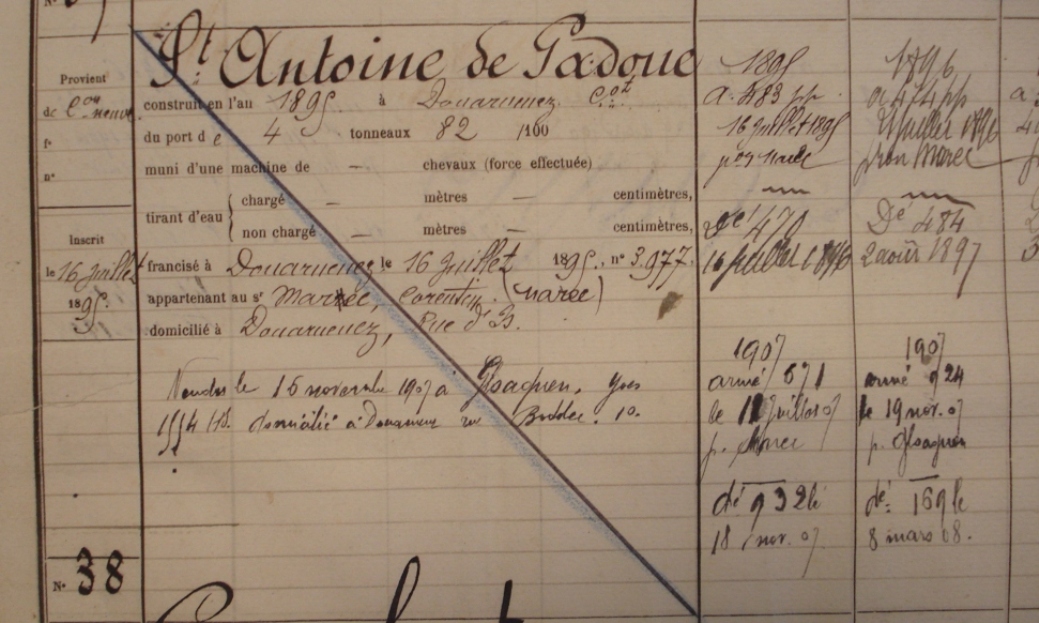 St Antoine de Padoue
Provient
de Con neuve
f°
n°
Inscrit
le 16 juillet
1895.
construit en l'an 1895 à Douarnenez
du port de 4 tonneaux 82 /100
muni d'une machine de — chevaux (force effectuée)
tirant d'eau
chargé — mètres — centimètres,
non chargé — mètres — centimètres,
francisé à Douarnenez le 16 Juillet 1895, n° 3.977.
appartenant au sr Marrec, Corentin. (narec)
domicilié à Douarnenez, Rue d'
Vendu le 16 novembre 1907 à Gloaguen, Yves
domicilié à Douarnenez rue 10.
N° 38
1895
a. 483 pp
16 juillet 1895
Dé 470
16 juillet 1896
1907
armé 671
le Juillet 07
p.
dé 932 le
18 nov. 07
1896
a 474 pp
juillet 1896
Marec
Dé 484
2 août 1897
1907
armé 924
le 19 nov. 07
p. Gloaguen
dé: 169 le
8 mars 08.